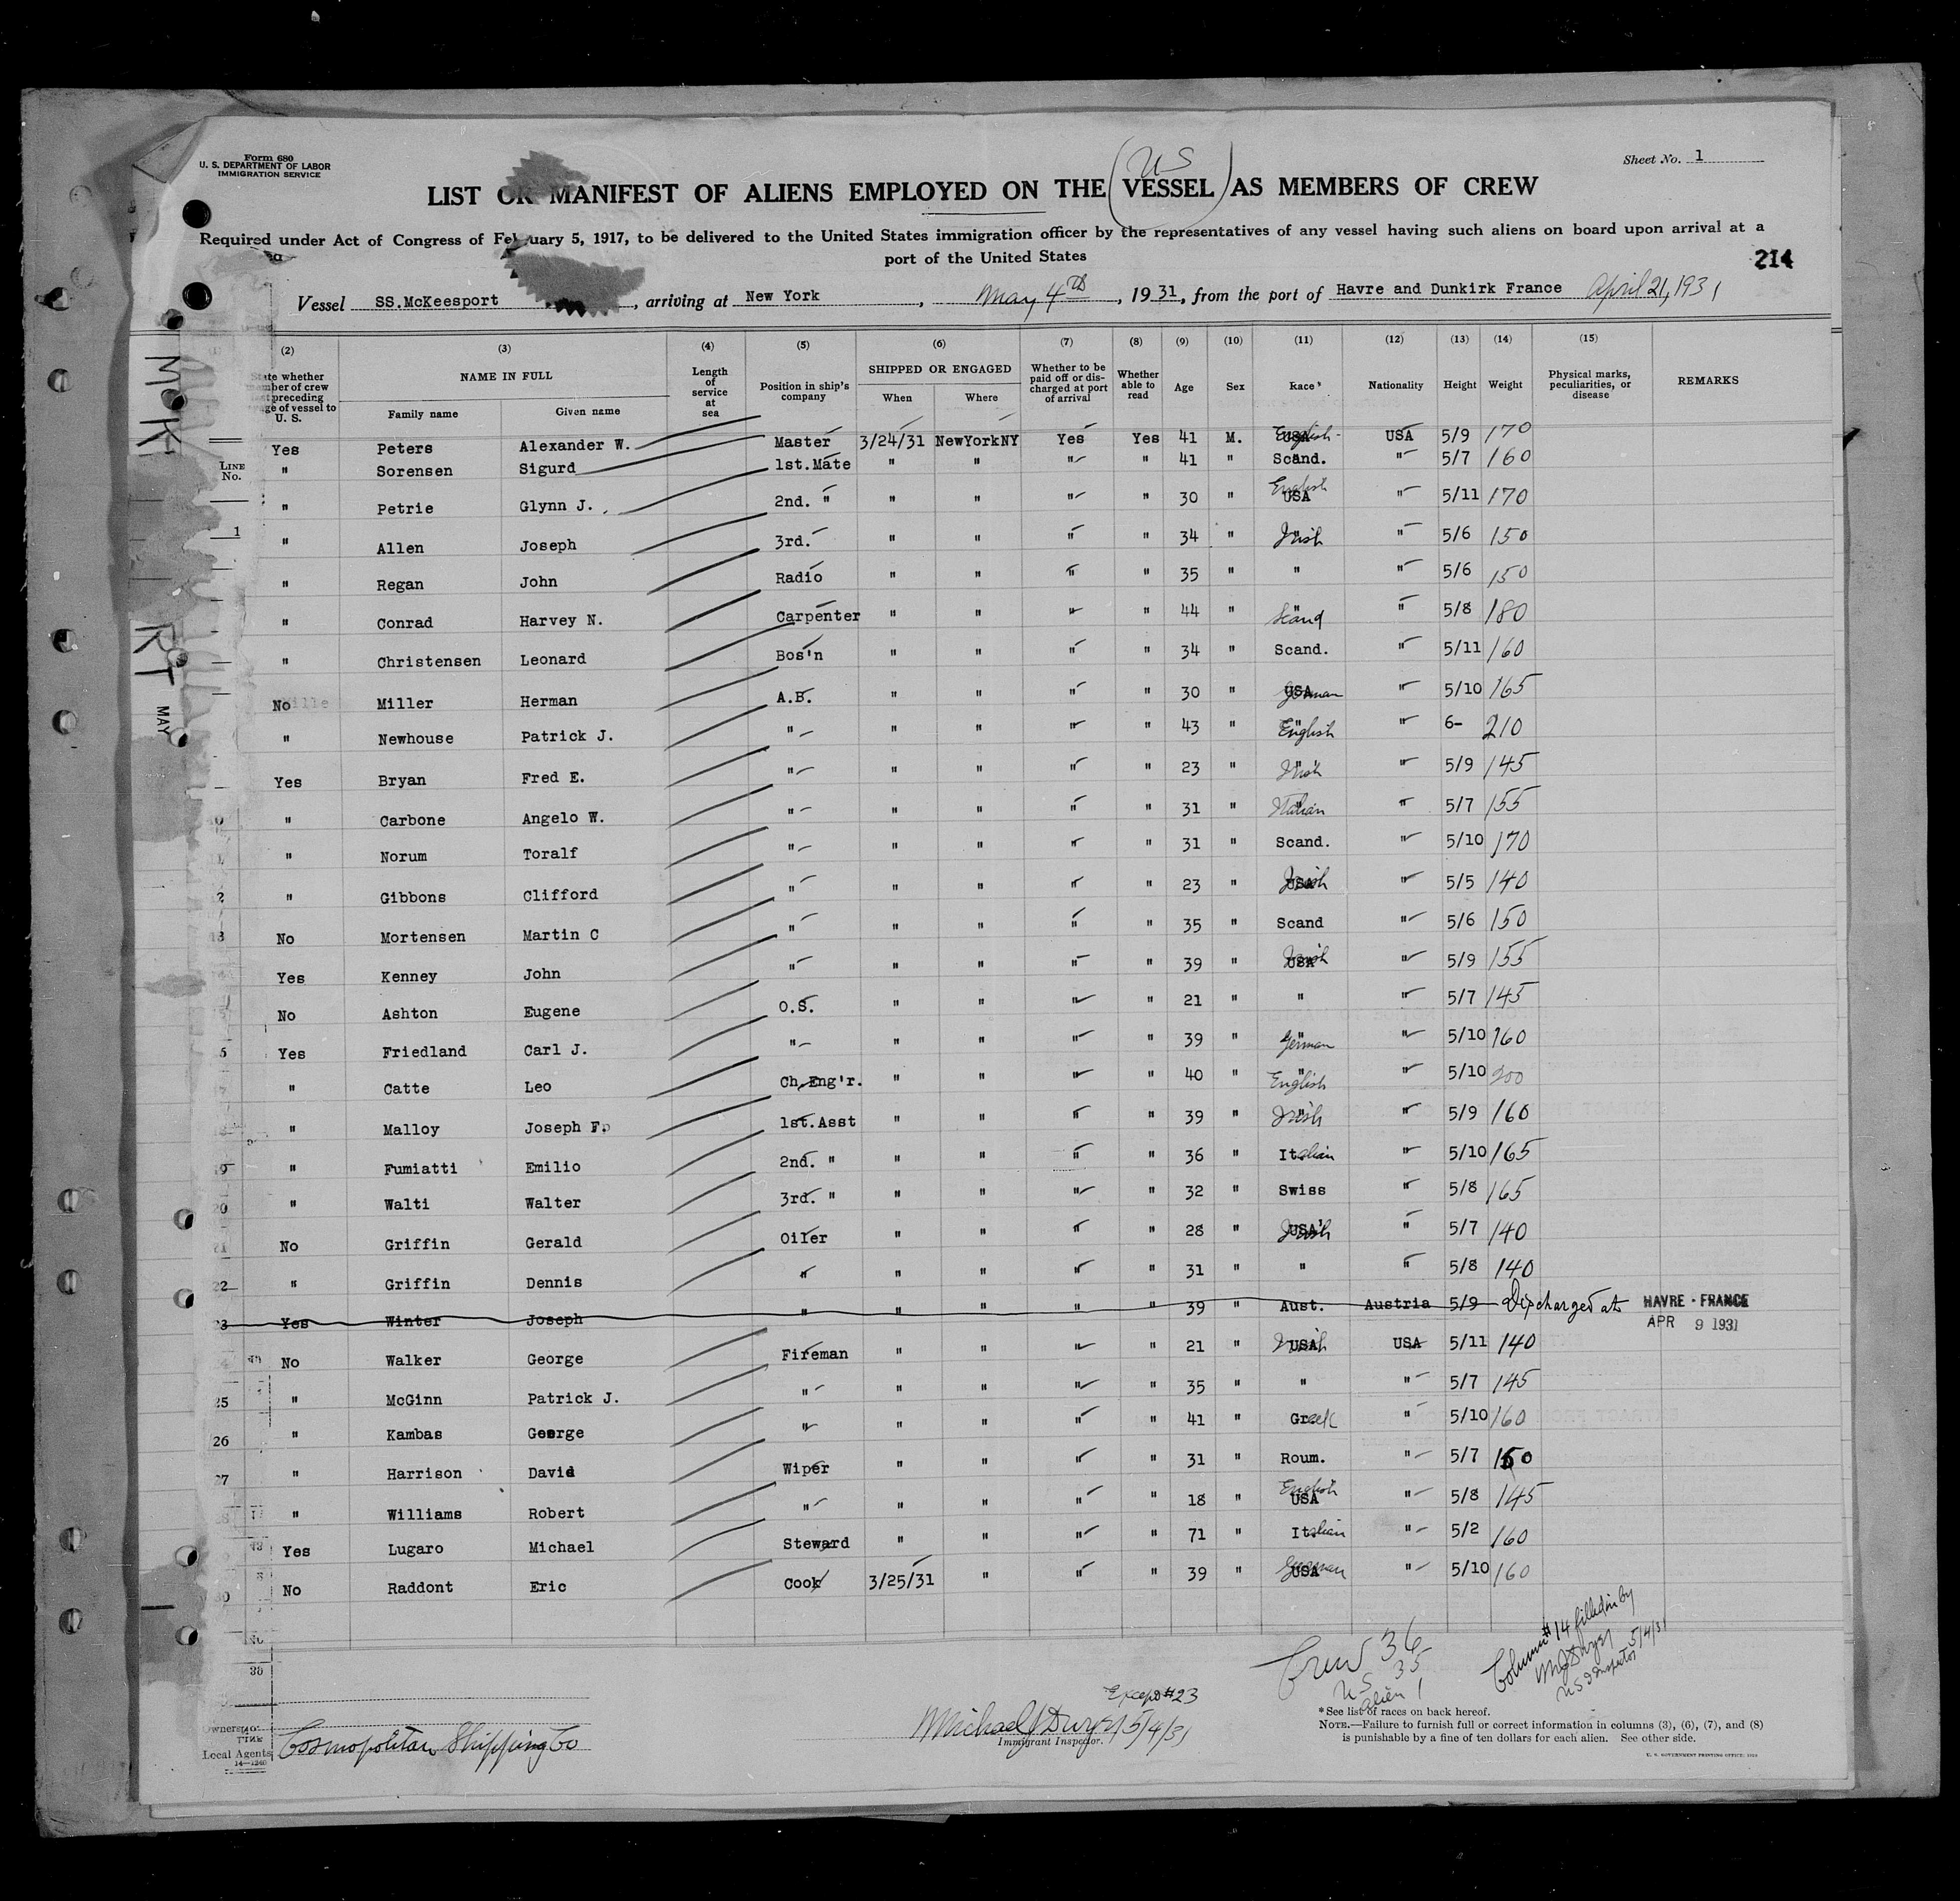 Form 680
U. S. DEPARTMENT OF LABOR
IMMIGRATION SERVICE
Sheet No. 1
US
LIST OR MANIFEST OF ALIENS EMPLOYED ON THE VESSEL AS MEMBERS OF CREW
Required under Act of Congress of February 5, 1917, to be delivered to the United States immigration officer by the representatives of any vessel having such aliens on board upon arrival at a
port of the United States
214
Vessel SS.McKeesport , arriving at New York , May 4th , 1931, from the port of Havre and Dunkirk France April 21, 1931
(2) (3) (4) (5) (6) (7) (8) (9) (10) (11) (12) (13) (14) (15)
State whether member of crew preceding voyage of vessel to U. S. NAME IN FULL Family name Given name Length of service at sea Position in ship's company SHIPPED OR ENGAGED When Where Whether to be paid off or discharged at port of arrival Whether able to read Age Sex Race* Nationality Height Weight Physical marks, peculiarities, or disease REMARKS
LINE No.
Yes Peters Alexander W. Master 3/24/31 NewYorkNY Yes Yes 41 M. USA English USA 5/9 170
" Sorensen Sigurd 1st.Mate " " " " 41 " Scand. " 5/7 160
" Petrie Glynn J. 2nd. " " " " " 30 " USA English " 5/11 170
1 " Allen Joseph 3rd. " " " " 34 " " Irish " 5/6 150
" Regan John Radio " " " " 35 " " " 5/6 150
" Conrad Harvey N. Carpenter " " " " 44 " " Scand " 5/8 180
" Christensen Leonard Bos'n " " " " 34 " Scand. " 5/11 160
No Miller Herman A.B. " " " " 30 " USA German " 5/10 165
" Newhouse Patrick J. " " " " " 43 " " English " 6- 210
Yes Bryan Fred E. " " " " " 23 " " Irish " 5/9 145
" Carbone Angelo W. " " " " " 31 " " Italian " 5/7 155
" Norum Toralf " " " " " 31 " Scand. " 5/10 170
" Gibbons Clifford " " " " " 23 " USA Irish " 5/5 140
No Mortensen Martin C " " " " " 35 " Scand " 5/6 150
Yes Kenney John " " " " " 39 " USA Irish " 5/9 155
No Ashton Eugene O.S. " " " " 21 " " " 5/7 145
Yes Friedland Carl J. " " " " " 39 " " German " 5/10 160
" Catte Leo Ch.Eng'r. " " " " 40 " " English " 5/10 200
" Malloy Joseph F. 1st.Asst " " " " 39 " " Irish " 5/9 160
19 " Fumiatti Emilio 2nd. " " " " " 36 " Italian " 5/10 165
20 " Walti Walter 3rd. " " " " " 32 " Swiss " 5/8 165
21 No Griffin Gerald Oiler " " " " 28 " USA Irish " 5/7 140
22 " Griffin Dennis " " " " " 31 " " " 5/8 140
23 Yes Winter Joseph " " " " " 39 " Aust. Austria 5/9 Discharged at HAVRE - FRANCE
APR 9 1931
No Walker George Fireman " " " " 21 " USA Irish USA 5/11 140
25 " McGinn Patrick J. " " " " " 35 " " " 5/7 145
26 " Kambas George " " " " " 41 " Greek " 5/10 160
27 " Harrison David Wiper " " " " 31 " Roum. " 5/7 150
" Williams Robert " " " " " 18 " USA English " 5/8 145
Yes Lugaro Michael Steward " " " " 71 " Italian " 5/2 160
30 No Raddont Eric Cook 3/25/31 " " " 39 " USA German " 5/10 160
McK
RT
MAY
Crew 36
US 35
alien 1
Column #14 filled in by
M J Dwyer
US I Inspector 5/4/31
Except #23
Michael J Dwyer 5/4/31
Immigrant Inspector.
Owners
Local Agents Cosmopolitan Shipping Co
14-1240
*See list of races on back hereof.
NOTE.—Failure to furnish full or correct information in columns (3), (6), (7), and (8)
is punishable by a fine of ten dollars for each alien. See other side.
U. S. GOVERNMENT PRINTING OFFICE